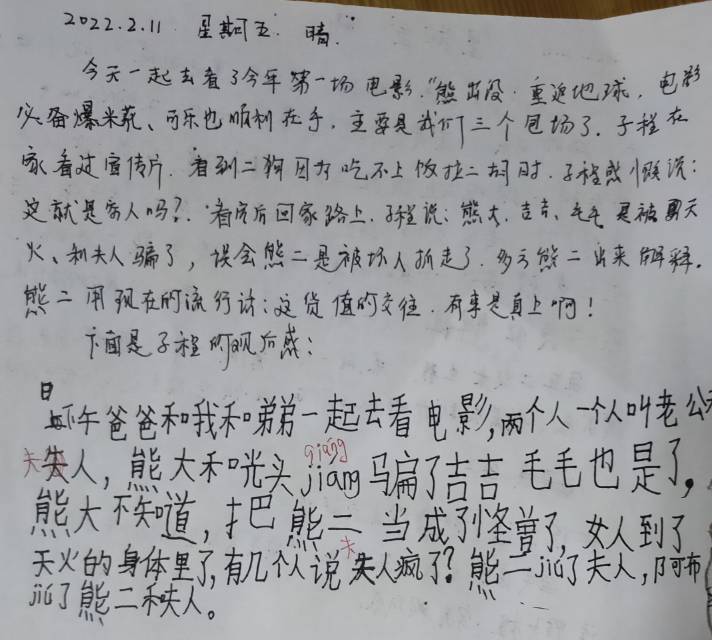 2022.2.11 星期五. 晴.
今天一起去看了今年第一场电影.“熊出没·重返地球, 电影
必备爆米花、可乐也顺利在手, 主要是我们三个包场了. 子程在
家看过宣传片. 看到二狗因为吃不上饭拉二胡时. 子程感慨说:
这就是穷人吗?. 看完后回家路上. 子程说: 熊大. 吉吉、毛毛是被
火、和夫人骗了, 误会熊二是被坏人抓走了. 多亏熊二出来解释.
熊二用现在的流行话: 这货值的交往. 有事是真上啊!
下面是子程的观后感:
日
下午爸爸和我和弟弟一起去看电影,两个人一个人叫老公
夫人, 熊大和光头jiang骗了吉吉毛毛也是了,
qiáng
熊大不知道, 把熊二当成了怪兽了, 女人到了
天火的身体里了,有几个人说夫人疯了? 熊二jiù了夫人, 阿布
jiù了熊二和夫人。